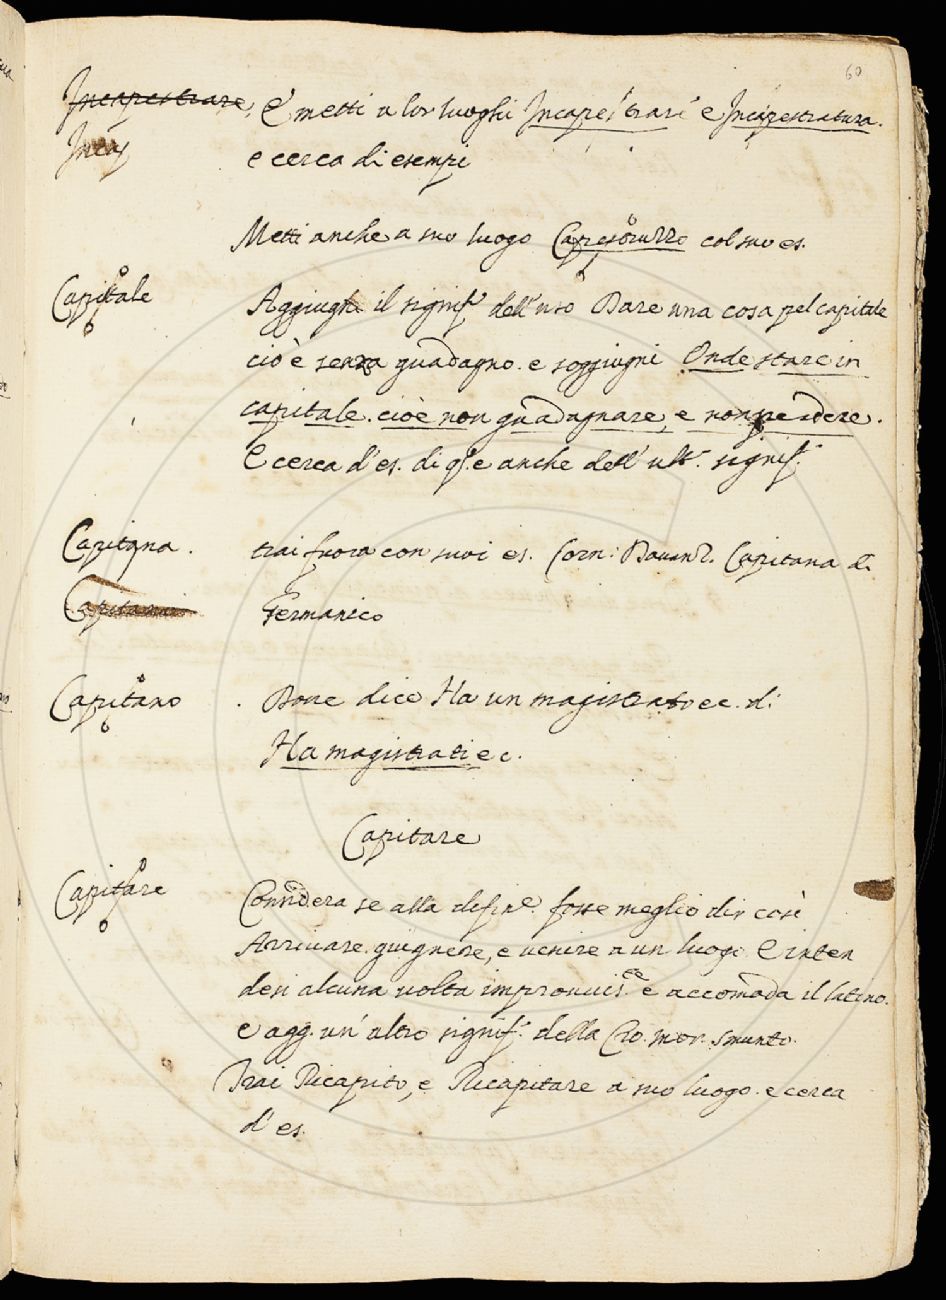 60
Incapestrare, E' metti a lor luoghi Incapestrare e Incapestratura.
Incap e cerca di esempi
Metti anche a suo luogo Capestruzzo col suo es.
Capitale Aggiugni il signif.o dell'uso Dare una cosa pel capitale
cioè senza guadagno. e soggiugni Onde stare in
capitale. cioè non guadagnare, e non perdere.
E cerca d'es. di q.o e anche dell'ult.o signif.o
Capitana. trai fuora con suoi es. Corn: Davanz. Capitana di
Germanico
Capitano. Dove dice Ha un magistrato ec. di
Ha magistrati ec.
Capitare
Capitare Considera se alla defin.e fosse meglio dir così
Arrivare. giugnere, e venire a un luogo E inten
desi alcuna volta improvvis.ce e accomoda il latino.
e agg. un' altro signif.o della Cro. mor. smunto.
Trai Ricapito, e Ricapitare a suo luogo. e cerca
d' es.